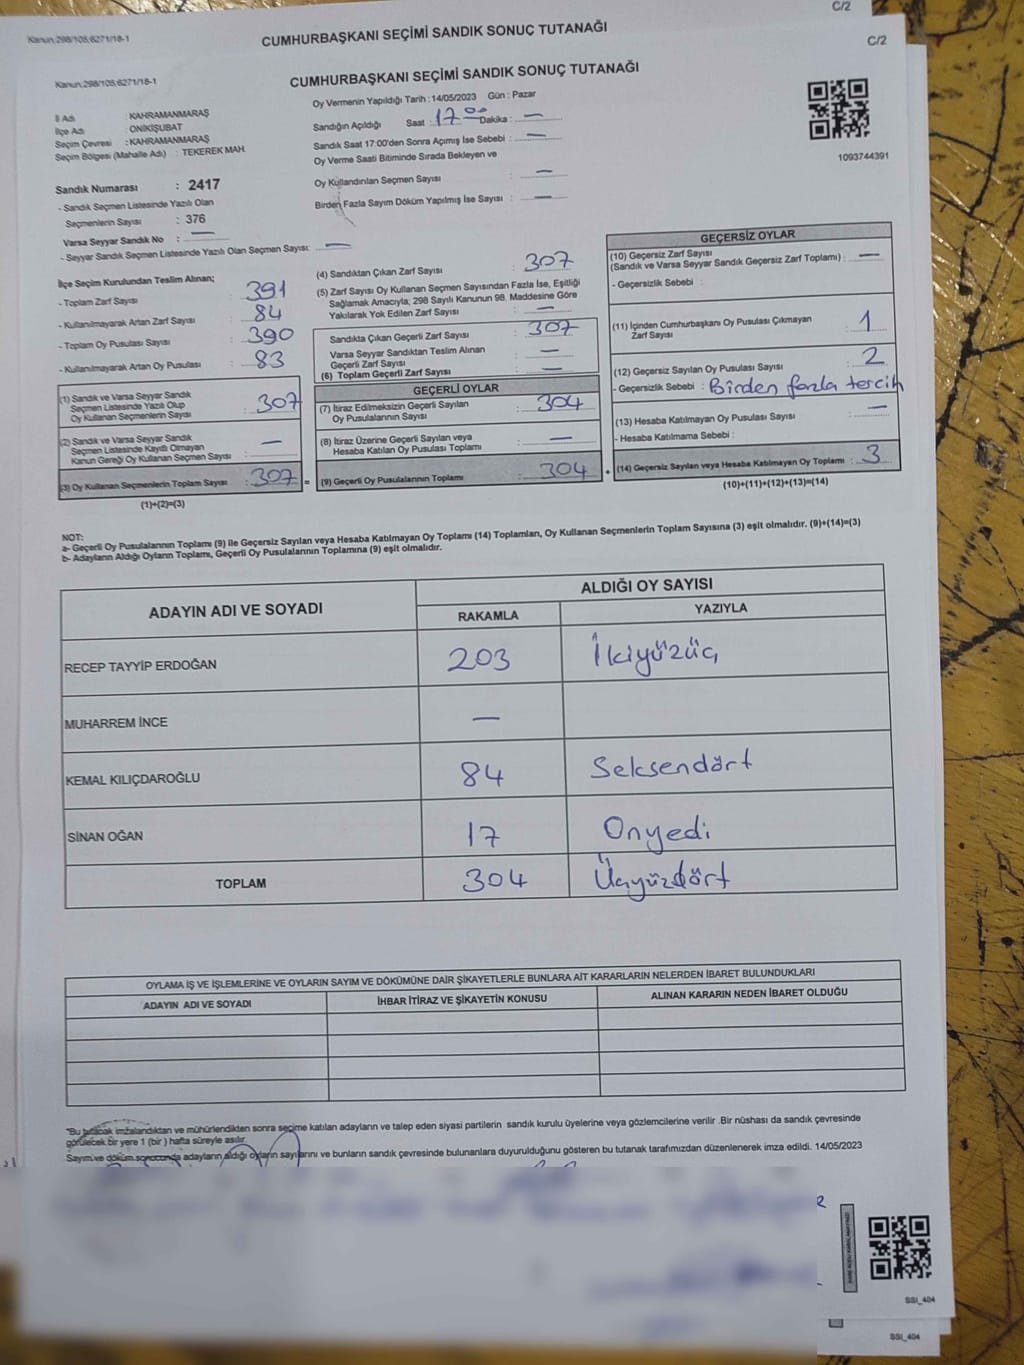 C/2
Kanun:298/105;6271/18-1
CUMHURBAŞKANI SEÇİMİ SANDIK SONUÇ TUTANAĞI
C/2
Kanun:298/105;6271/18-1
CUMHURBAŞKANI SEÇİMİ SANDIK SONUÇ TUTANAĞI
İl Adı : KAHRAMANMARAŞ
İlçe Adı : ONİKİŞUBAT
Seçim Çevresi : KAHRAMANMARAŞ
Seçim Bölgesi (Mahalle Adı) : TEKEREK MAH.
Sandık Numarası : 2417
- Sandık Seçmen Listesinde Yazılı Olan
Seçmenlerin Sayısı : 376
Varsa Seyyar Sandık No : —
- Seyyar Sandık Seçmen Listesinde Yazılı Olan Seçmen Sayısı: —
Oy Vermenin Yapıldığı Tarih : 14/05/2023 Gün : Pazar
Sandığın Açıldığı Saat : 17 00 Dakika : —
Sandık Saat 17:00'den Sonra Açımış İse Sebebi : —
Oy Verme Saati Bitiminde Sırada Bekleyen ve
Oy Kullandırılan Seçmen Sayısı : —
Birden Fazla Sayım Döküm Yapılmış İse Sayısı : —
1093744391
İlçe Seçim Kurulundan Teslim Alınan;
- Toplam Zarf Sayısı : 391
- Kullanılmayarak Artan Zarf Sayısı : 84
- Toplam Oy Pusulası Sayısı : 390
- Kullanılmayarak Artan Oy Pusulası : 83
(1) Sandık ve Varsa Seyyar Sandık
Seçmen Listesinde Yazılı Olup
Oy Kullanan Seçmenlerin Sayısı : 307
(2) Sandık ve Varsa Seyyar Sandık
Seçmen Listesinde Kayıtlı Olmayan
Kanun Gereği Oy Kullanan Seçmen Sayısı : —
(3) Oy Kullanan Seçmenlerin Toplam Sayısı : 307 =
(1)+(2)=(3)
(4) Sandıktan Çıkan Zarf Sayısı : 307
(5) Zarf Sayısı Oy Kullanan Seçmen Sayısından Fazla İse, Eşitliği
Sağlamak Amacıyla; 298 Sayılı Kanunun 98. Maddesine Göre
Yakılarak Yok Edilen Zarf Sayısı : —
Sandıkta Çıkan Geçerli Zarf Sayısı : 307
Varsa Seyyar Sandıktan Teslim Alınan
Geçerli Zarf Sayısı : —
(6) Toplam Geçerli Zarf Sayısı : —
GEÇERLİ OYLAR
(7) İtiraz Edilmeksizin Geçerli Sayılan
Oy Pusulalarının Sayısı : 304
(8) İtiraz Üzerine Geçerli Sayılan veya
Hesaba Katılan Oy Pusulası Toplamı : —
(9) Geçerli Oy Pusulalarının Toplamı : 304 +
GEÇERSİZ OYLAR
(10) Geçersiz Zarf Sayısı
(Sandık ve Varsa Seyyar Sandık Geçersiz Zarf Toplamı) : —
- Geçersizlik Sebebi :
(11) İçinden Cumhurbaşkanı Oy Pusulası Çıkmayan
Zarf Sayısı : 1
(12) Geçersiz Sayılan Oy Pusulası Sayısı : 2
- Geçersizlik Sebebi : Birden fazla tercih
(13) Hesaba Katılmayan Oy Pusulası Sayısı : —
- Hesaba Katılmama Sebebi :
(14) Geçersiz Sayılan veya Hesaba Katılmayan Oy Toplamı : 3
(10)+(11)+(12)+(13)=(14)
NOT:
a- Geçerli Oy Pusulalarının Toplamı (9) ile Geçersiz Sayılan veya Hesaba Katılmayan Oy Toplamı (14) Toplamları, Oy Kullanan Seçmenlerin Toplam Sayısına (3) eşit olmalıdır. (9)+(14)=(3)
b- Adayların Aldığı Oyların Toplamı, Geçerli Oy Pusulalarının Toplamına (9) eşit olmalıdır.
ADAYIN ADI VE SOYADI
ALDIĞI OY SAYISI
RAKAMLA YAZIYLA
RECEP TAYYİP ERDOĞAN 203 İkiyüzüç
MUHARREM İNCE —
KEMAL KILIÇDAROĞLU 84 Seksendört
SİNAN OĞAN 17 Onyedi
TOPLAM 304 Üçyüzdört
OYLAMA İŞ VE İŞLEMLERİNE VE OYLARIN SAYIM VE DÖKÜMÜNE DAİR ŞİKAYETLERLE BUNLARA AİT KARARLARIN NELERDEN İBARET BULUNDUKLARI
ADAYIN ADI VE SOYADI İHBAR İTİRAZ VE ŞİKAYETİN KONUSU ALINAN KARARIN NEDEN İBARET OLDUĞU
"Bu tutanak imzalandıktan ve mühürlendikten sonra seçime katılan adayların ve talep eden siyasi partilerin sandık kurulu üyelerine veya gözlemcilerine verilir .Bir nüshası da sandık çevresinde
görülecek bir yere 1 (bir ) hafta süreyle asılır.
Sayım ve döküm sonucunda adayların aldığı oyların sayılarını ve bunların sandık çevresinde bulunanlara duyurulduğunu gösteren bu tutanak tarafımızdan düzenlenerek imza edildi. 14/05/2023
SSI_404
SSI_404